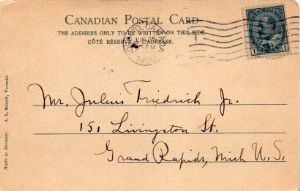 CANADIAN POSTAL CARD
THE ADDRESS ONLY TO BE WRITTEN ON THIS SIDE
CÔTÉ RÉSERVÉ À L'ADRESSE.
Mr. Julius Friedrich Jr.
151 Livingston St.
Grand Rapids, Mich U.S.
Made in Germany